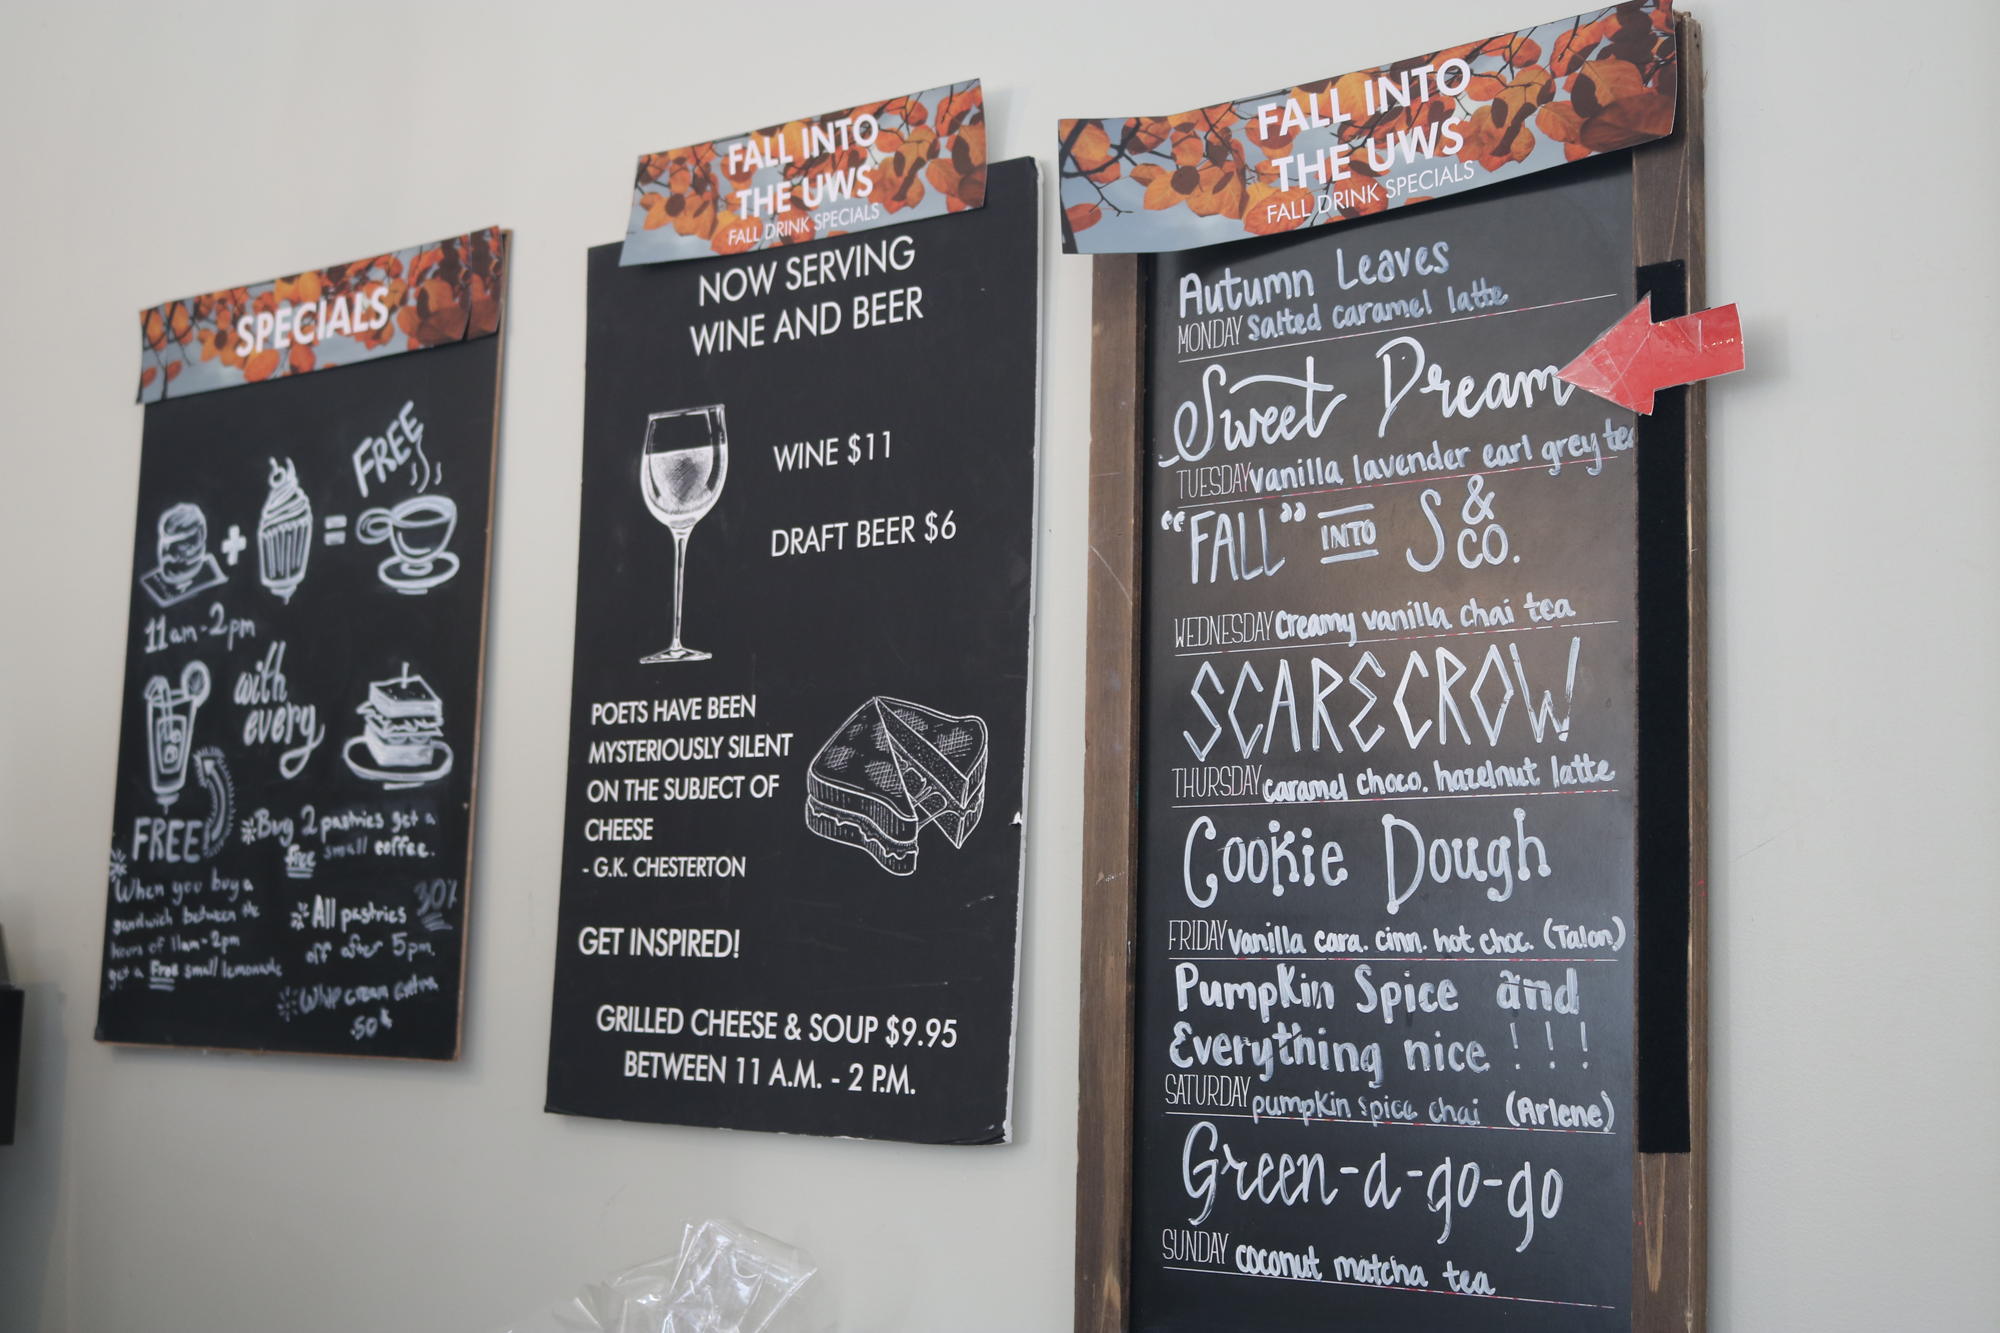 SPECIALS
FREE
+ =
11am-2pm
with
every
FREE
Buy 2 pastries get a
free small coffee.
When you buy a
sandwich between the
hours of 11am-2pm
get a Free small lemonade
All pastries 30%
off after 5pm.
Whip cream extra
.50¢
FALL INTO
THE UWS
FALL DRINK SPECIALS
NOW SERVING
WINE AND BEER
WINE $11
DRAFT BEER $6
POETS HAVE BEEN
MYSTERIOUSLY SILENT
ON THE SUBJECT OF
CHEESE
- G.K. CHESTERTON
GET INSPIRED!
GRILLED CHEESE & SOUP $9.95
BETWEEN 11 A.M. - 2 P.M.
FALL INTO
THE UWS
FALL DRINK SPECIALS
Autumn Leaves
MONDAY Salted caramel latte
Sweet Dream
TUESDAY vanilla lavender earl grey tea
"FALL" INTO S & CO.
WEDNESDAY Creamy vanilla chai tea
SCARECROW
THURSDAY caramel choco. hazelnut latte
Cookie Dough
FRIDAY vanilla cara. cinn. hot choc. (Talon)
Pumpkin Spice and
Everything nice !!!
SATURDAY pumpkin spice chai (Arlene)
Green-a-go-go
SUNDAY coconut matcha tea